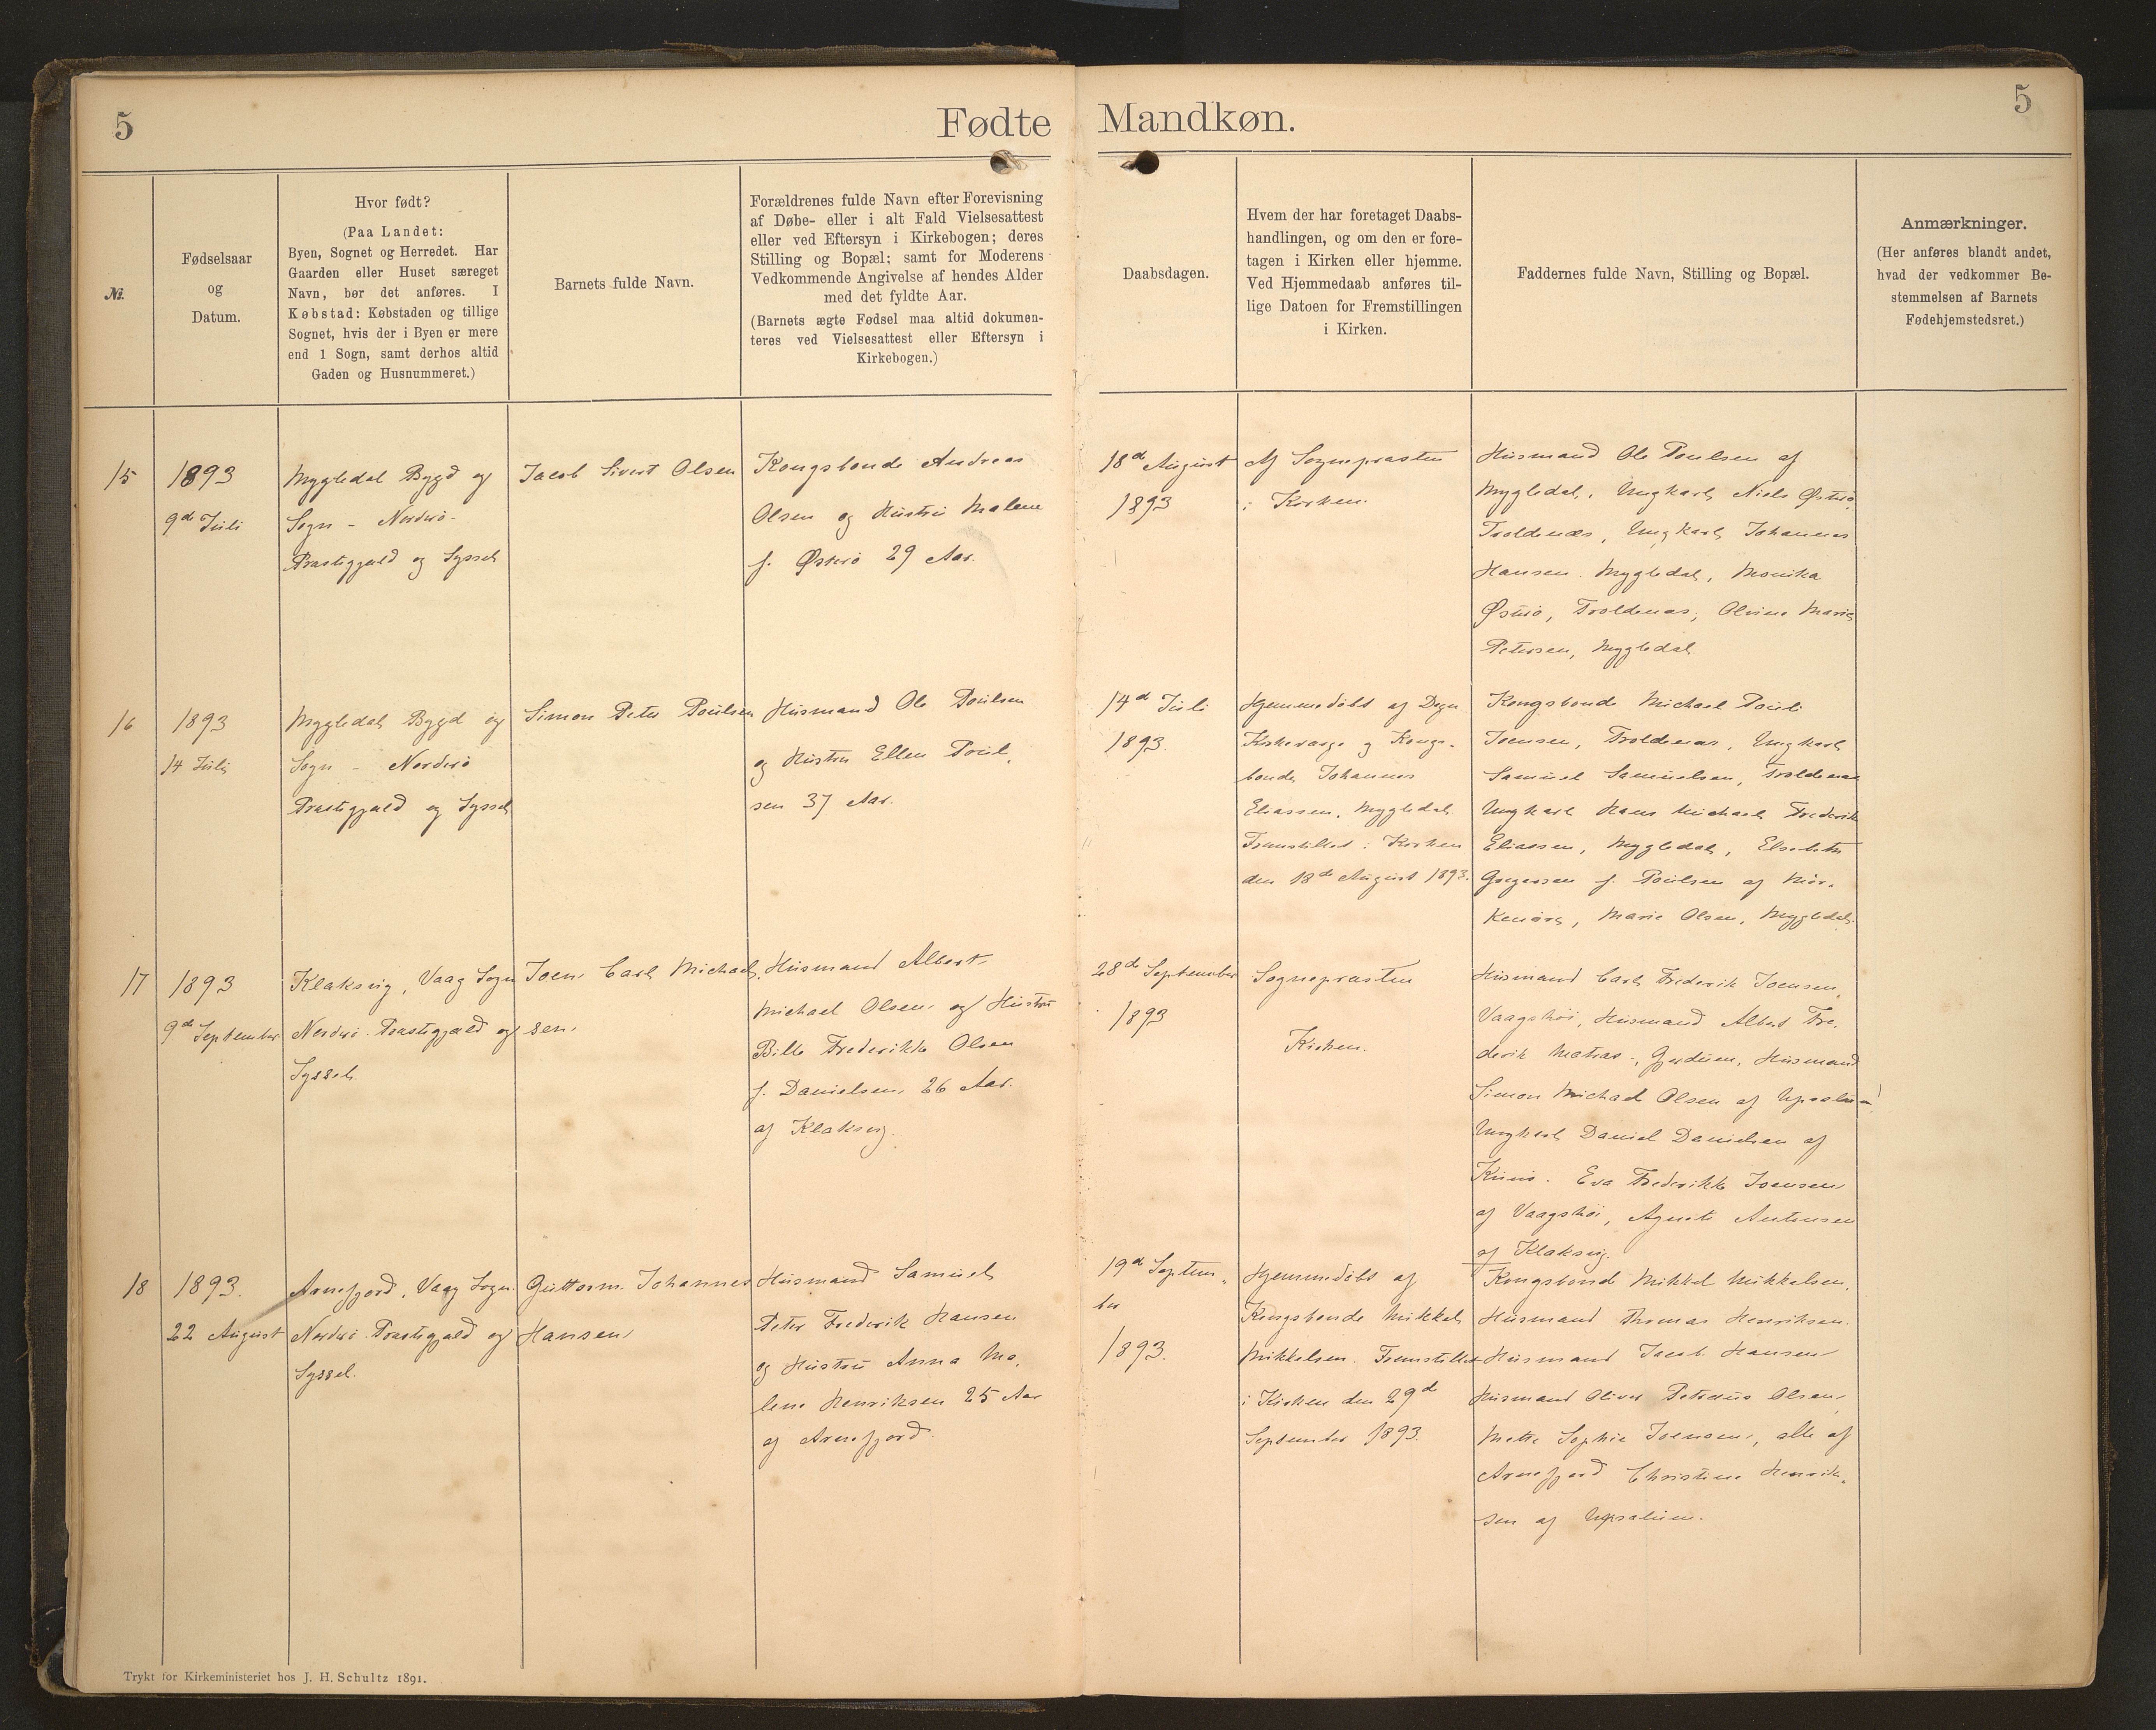 5
Fødte
Mandkøn.
5
Nr.
Fødselsaar
og
Datum.
Hvor født?
(Paa Landet:
Byen, Sognet og Herredet. Har
Gaarden eller Huset særeget
Navn, bør det anføres. I
Købstad: Købstaden og tillige
Sognet, hvis der i Byen er mere
end 1 Sogn, samt derhos altid
Gaden og Husnummeret.)
Barnets fulde Navn.
Forældrenes fulde Navn efter Forevisning
af Døbe- eller i alt Fald Vielsesattest
eller ved Eftersyn i Kirkebogen; deres
Stilling og Bopæl; samt for Moderens
Vedkommende Angivelse af hendes Alder
med det fyldte Aar.
(Barnets ægte Fødsel maa altid dokumen-
teres ved Vielsesattest eller Eftersyn i
Kirkebogen.)
Daabsdagen.
Hvem der har foretaget Daabs-
handlingen, og om den er fore-
tagen i Kirken eller hjemme.
Ved Hjemmedaab anføres til-
lige Datoen for Fremstillingen
i Kirken.
Faddernes fulde Navn, Stilling og Bopæl.
Anmærkninger.
(Her anføres blandt andet,
hvad der vedkommer Be-
stemmelsen af Barnets
Fødehjemstedsret.)
15
1893
9de Juli
Mygledal Bygd og
Sogn - Norderø-
Præstegjæld og Syssel
Jacob Sivert Olsen
Kongsbonde Andreas
Olsen og Hustru Malene
f. Østerø 29 Aar.
18de August
1893
Af Sognepræsten
i Kirken.
Husmand Ole Poulsen af
Mygledal, Ungkarl Niels Østerø,
Troldenæs, Ungkarl Johannes
Hansen. Mygledal, Monika
Østerø, Troldenæs, Olvine Marie
Petersen, Mygledal
16
1893
14 Juli
Mygledal Bygd og
Sogn - Norderø
Præstegjæld og Syssel
Simon Peter Poulsen
Husmand Ole Poulsen
og Hustru Ellen Poul-
sen 37 Aar.
14de Juli
1893.
Hjemmedøbt af Degn
Kirkeværge og Kongs-
bonde Johannes
Eliassen, Mygledal
Fremstillet i Kirken
den 18de August 1893.
Kongsbonde Michael Pouli
Joensen, Troldenæs, Ungkarl
Samuel Samuelsen, Troldenæs
Ungkarl Hans Michael Frederik
Eliassen, Mygledal, Elsebeth
Gregersen f. Poulsen af
Marie Olsen, Mygledal.
17
1893
9de September
Klaksvig, Vaag Sogn
Norderø Præstegjæld og
Syssel.
Joen Carl Michael-
sen.
Husmand Albert
Michael Olsen og Hustru
Bille Frederikke Olsen
f. Danielsen, 26 Aar.
af Klaksvig.
28de September
1893
Sognepræsten
Kirken.
Husmand Carl Frederik Joensen,
Vaagshøi, Husmand Albert Fre-
derik Matras, Gjerduen, Husmand
Simon Michael Olsen af Upsaluun
Ungkarl Daniel Danielsen af
Kunø. Eva Frederikke Joensen
af Vaagshøi, Agnete Antonsen
af Klaksvig.
18
1893.
22 August
Arnefjord, Vaag Sogn
Norderø Præstegjæld og
Syssel.
Guttorm Johannes
Hansen
Husmand Samuel
Peter Frederik Hansen
og Hustru Anna Ma-
lene Henriksen 25 Aar
af Arnefjord.
19de Septem-
ber
1893.
Hjemmedøbt af
Kongsbonde Mikkel
Mikkelsen. Fremstillet
i Kirken den 29de
September 1893.
Kongsbonde Mikkel Mikkelsen,
Husmand Thomas Henriksen.
Husmand Jacob Hansen
Husmand Oliver Petræus Olsen,
Mette Sophie Joensen, alle af
Arnefjord Christine Henrik-
sen af Upsaluun.
Trykt for Kirkeministeriet hos J. H. Schultz 1891.